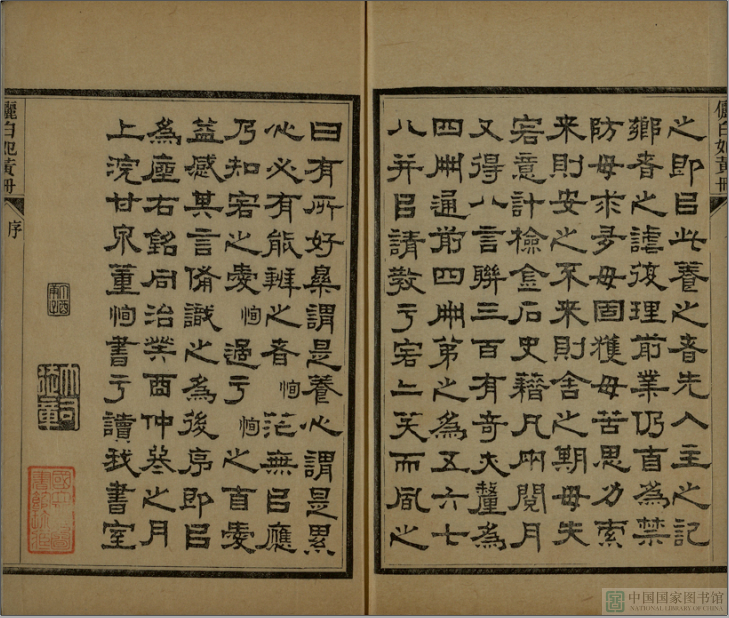 儷白妃黃冊
之即㠯此養之者先入主之記
鄉者之謔復理前業仍自為禁
防毋求多毋固獲毋苦思力索
來則安之不來則舍之期毋失
客意計檢金石史籍凡兩閱月
又得八言聯三百有奇夫釐為
四冊通前四冊第之為五六七
八并㠯請教于客二笑而風之
曰有所好樂謂是養心謂是累
心必有能辨之者恂茫無㠯應
乃知客之愛恂過于恂之自愛
益感其言備識之為後序即㠯
為座右銘同治癸酉仲冬之月
上浣甘泉董恂書于讀我書室
儷白妃黃冊
序
中国国家图书馆
NATIONAL LIBRARY OF CHINA